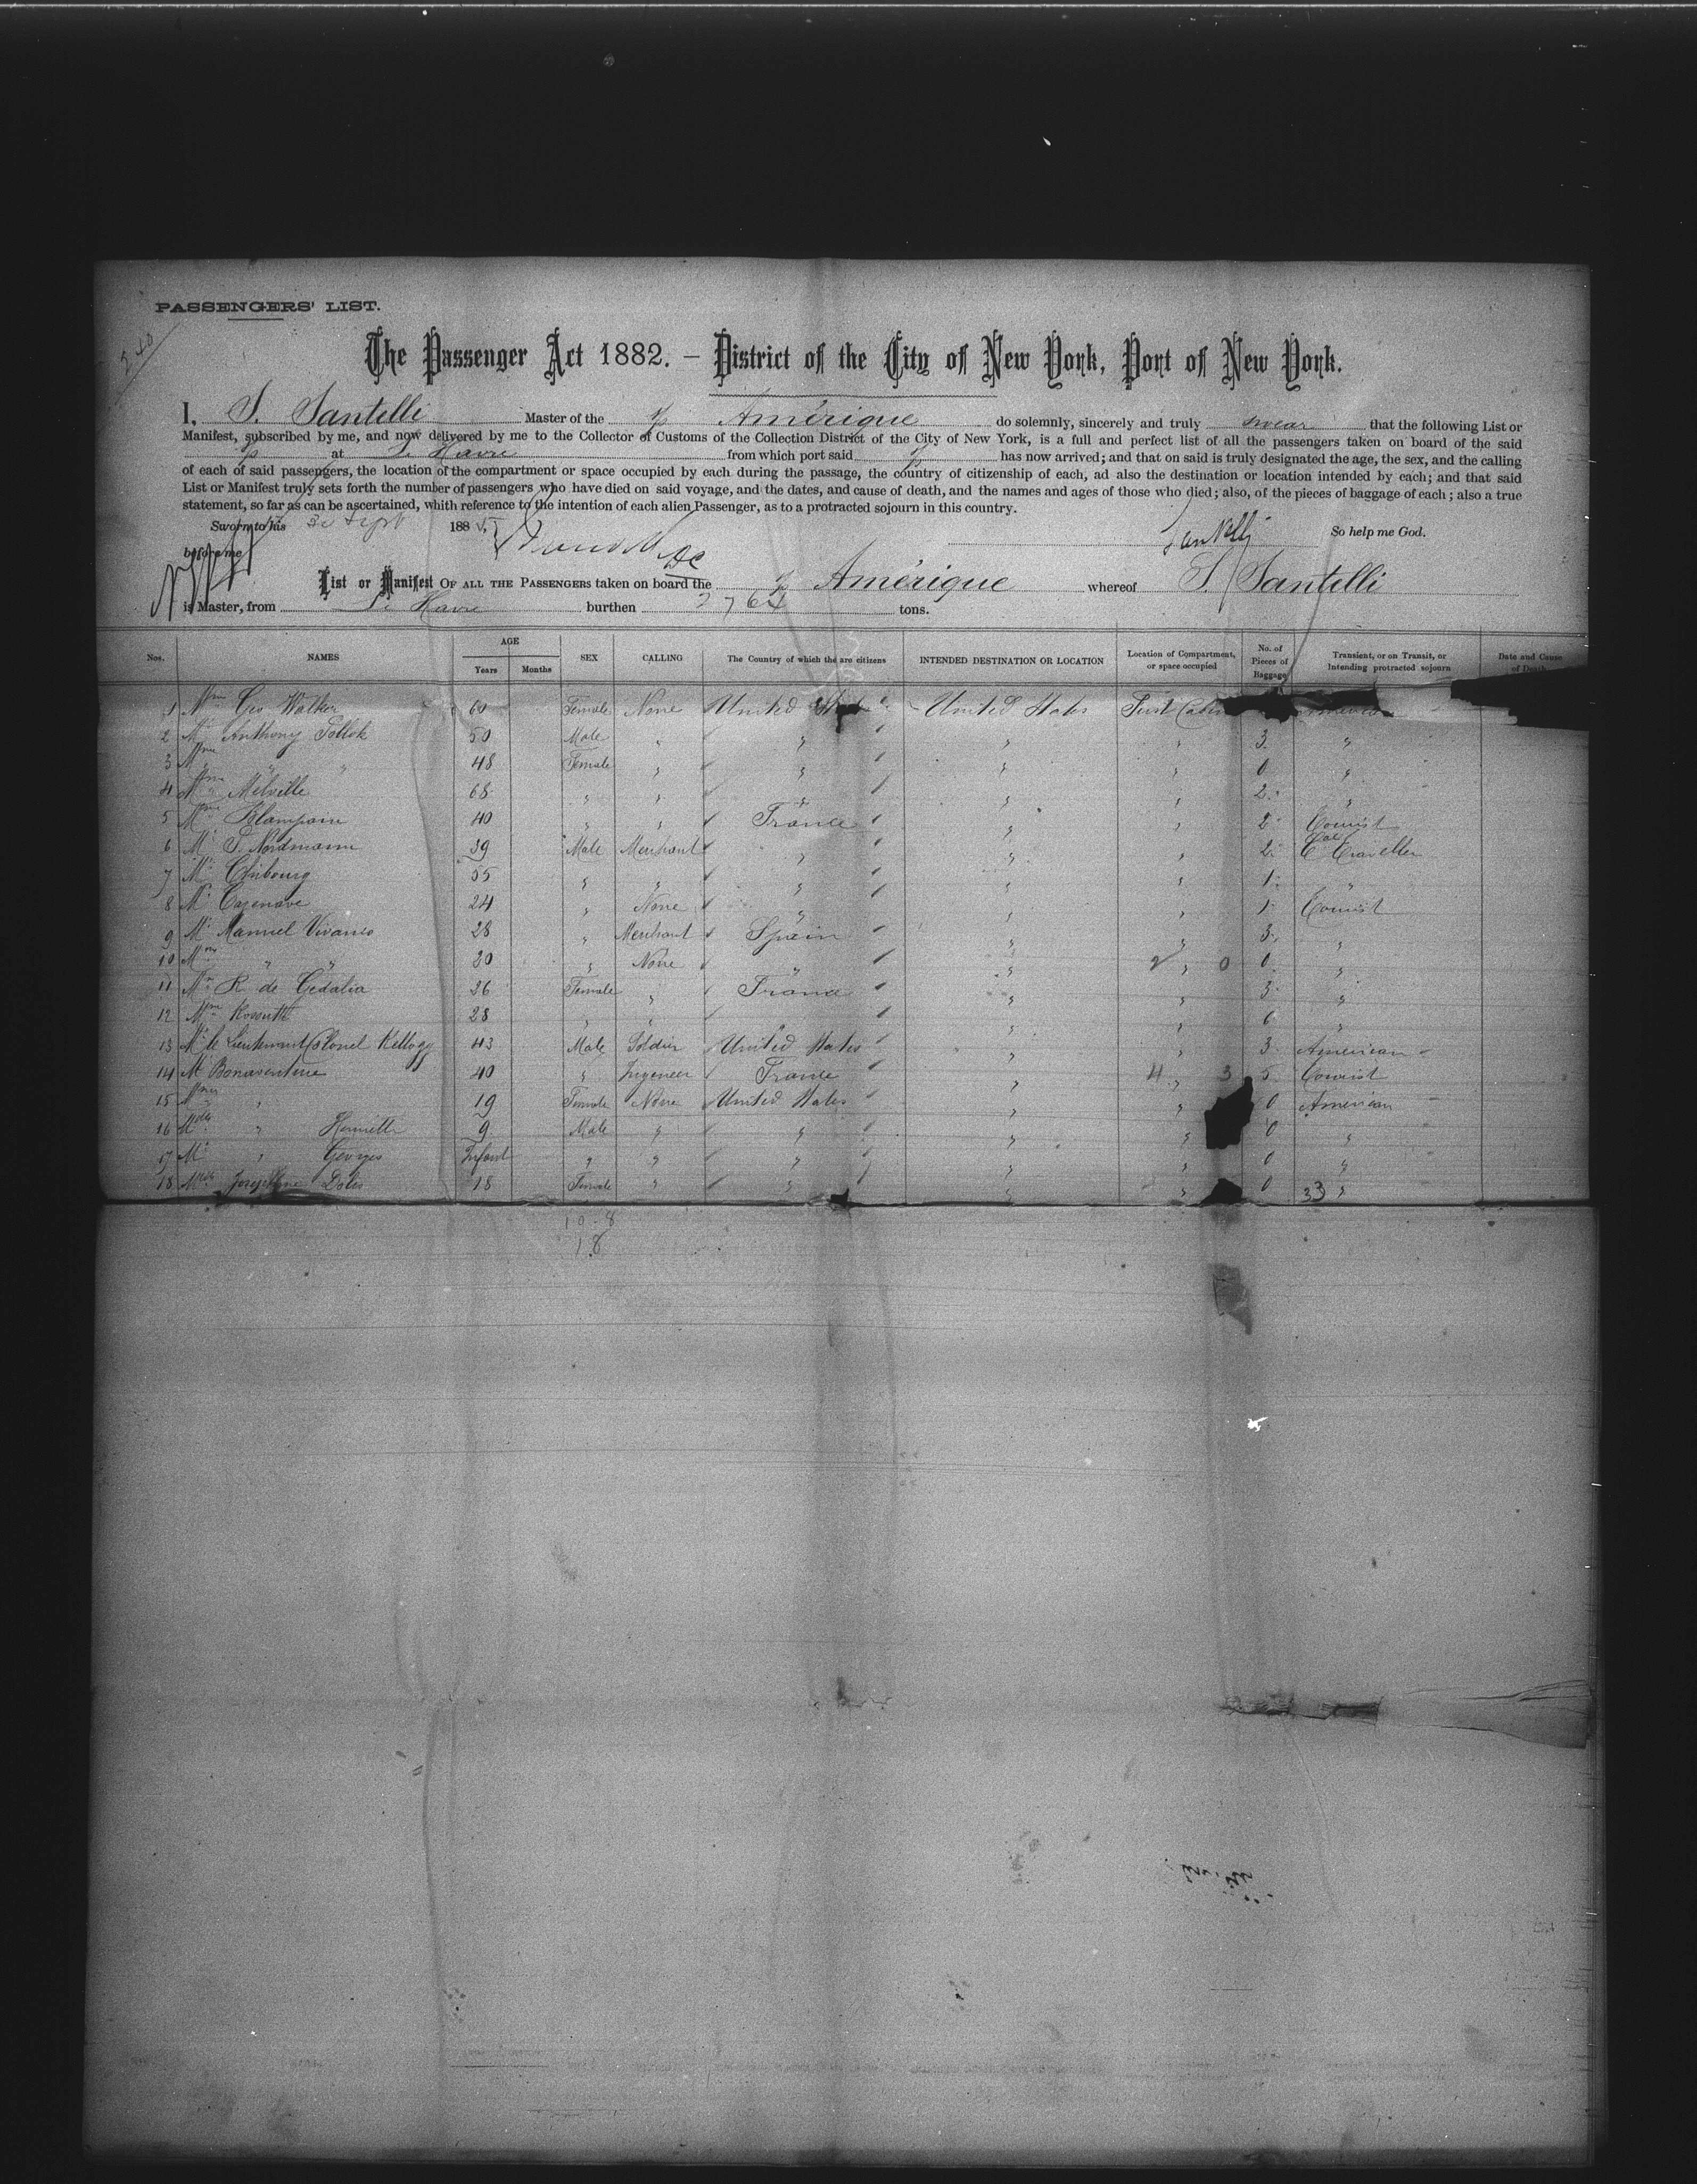 PASSENGERS' LIST.
240
The Passenger Act 1882. – District of the City of New York, Port of New York.
I, S. Santelli Master of the Amérique do solemnly, sincerely and truly swear that the following List or
Manifest, subscribed by me, and now delivered by me to the Collector of Customs of the Collection District of the City of New York, is a full and perfect list of all the passengers taken on board of the said
at Le Havre from which port said has now arrived; and that on said is truly designated the age, the sex, and the calling
of each of said passengers, the location of the compartment or space occupied by each during the passage, the country of citizenship of each, ad also the destination or location intended by each; and that said
List or Manifest truly sets forth the number of passengers who have died on said voyage, and the dates, and cause of death, and the names and ages of those who died; also, of the pieces of baggage of each; also a true
statement, so far as can be ascertained, whith reference to the intention of each alien Passenger, as to a protracted sojourn in this country.
Sworn to his 30 Sept 1885 Santelli So help me God.
before me
List or Manifest OF ALL THE PASSENGERS taken on board the Amérique whereof S. Santelli
is Master, from Le Havre burthen tons.
Nos. NAMES AGE Years Months SEX CALLING The Country of which the are citizens INTENDED DESTINATION OR LOCATION Location of Compartment, or space occupied No. of Pieces of Baggage Transient, or on Transit, or Intending protracted sojourn Date and Cause of Death
1 Mme Geo Walker 60 Female None United States United States First Cabin
2 Mr Anthony Pollok 50 Male " " " " 3 "
3 Mme " " 48 Female " " " " 0 "
4 Mme Melville 68 " " " " " 2 "
5 Mme 40 " " France " " 2 Tourist
6 Mr S. Nordmann 39 Male Merchant " " " 2 Traveller
7 Mr 55 " " " " " 1 "
8 Mr Cazenave 24 " None " " " 1 Tourist
9 Mr Manuel Vivanco 28 " Merchant Spain " " 3 "
10 Mme " " 30 " None " " " 0 "
11 R. de Gedalia 36 Female " France " " 3 "
12 Mme 28 " " " " " 6 "
13 Mr le Lieutenant Colonel Kellogg 43 Male Soldier United States " " 3 American
14 Mr Bonaventure 40 " Ingeneer France " " 5 Tourist
15 Mme " 19 Female None United States " " 0 American
16 Mlle " Henriette 9 Male " " " " 0 "
17 Mr " Georges Infant " " " " " 0 "
18 Mlle Josephine 18 Female " " " " 0 "
33
10-8
18